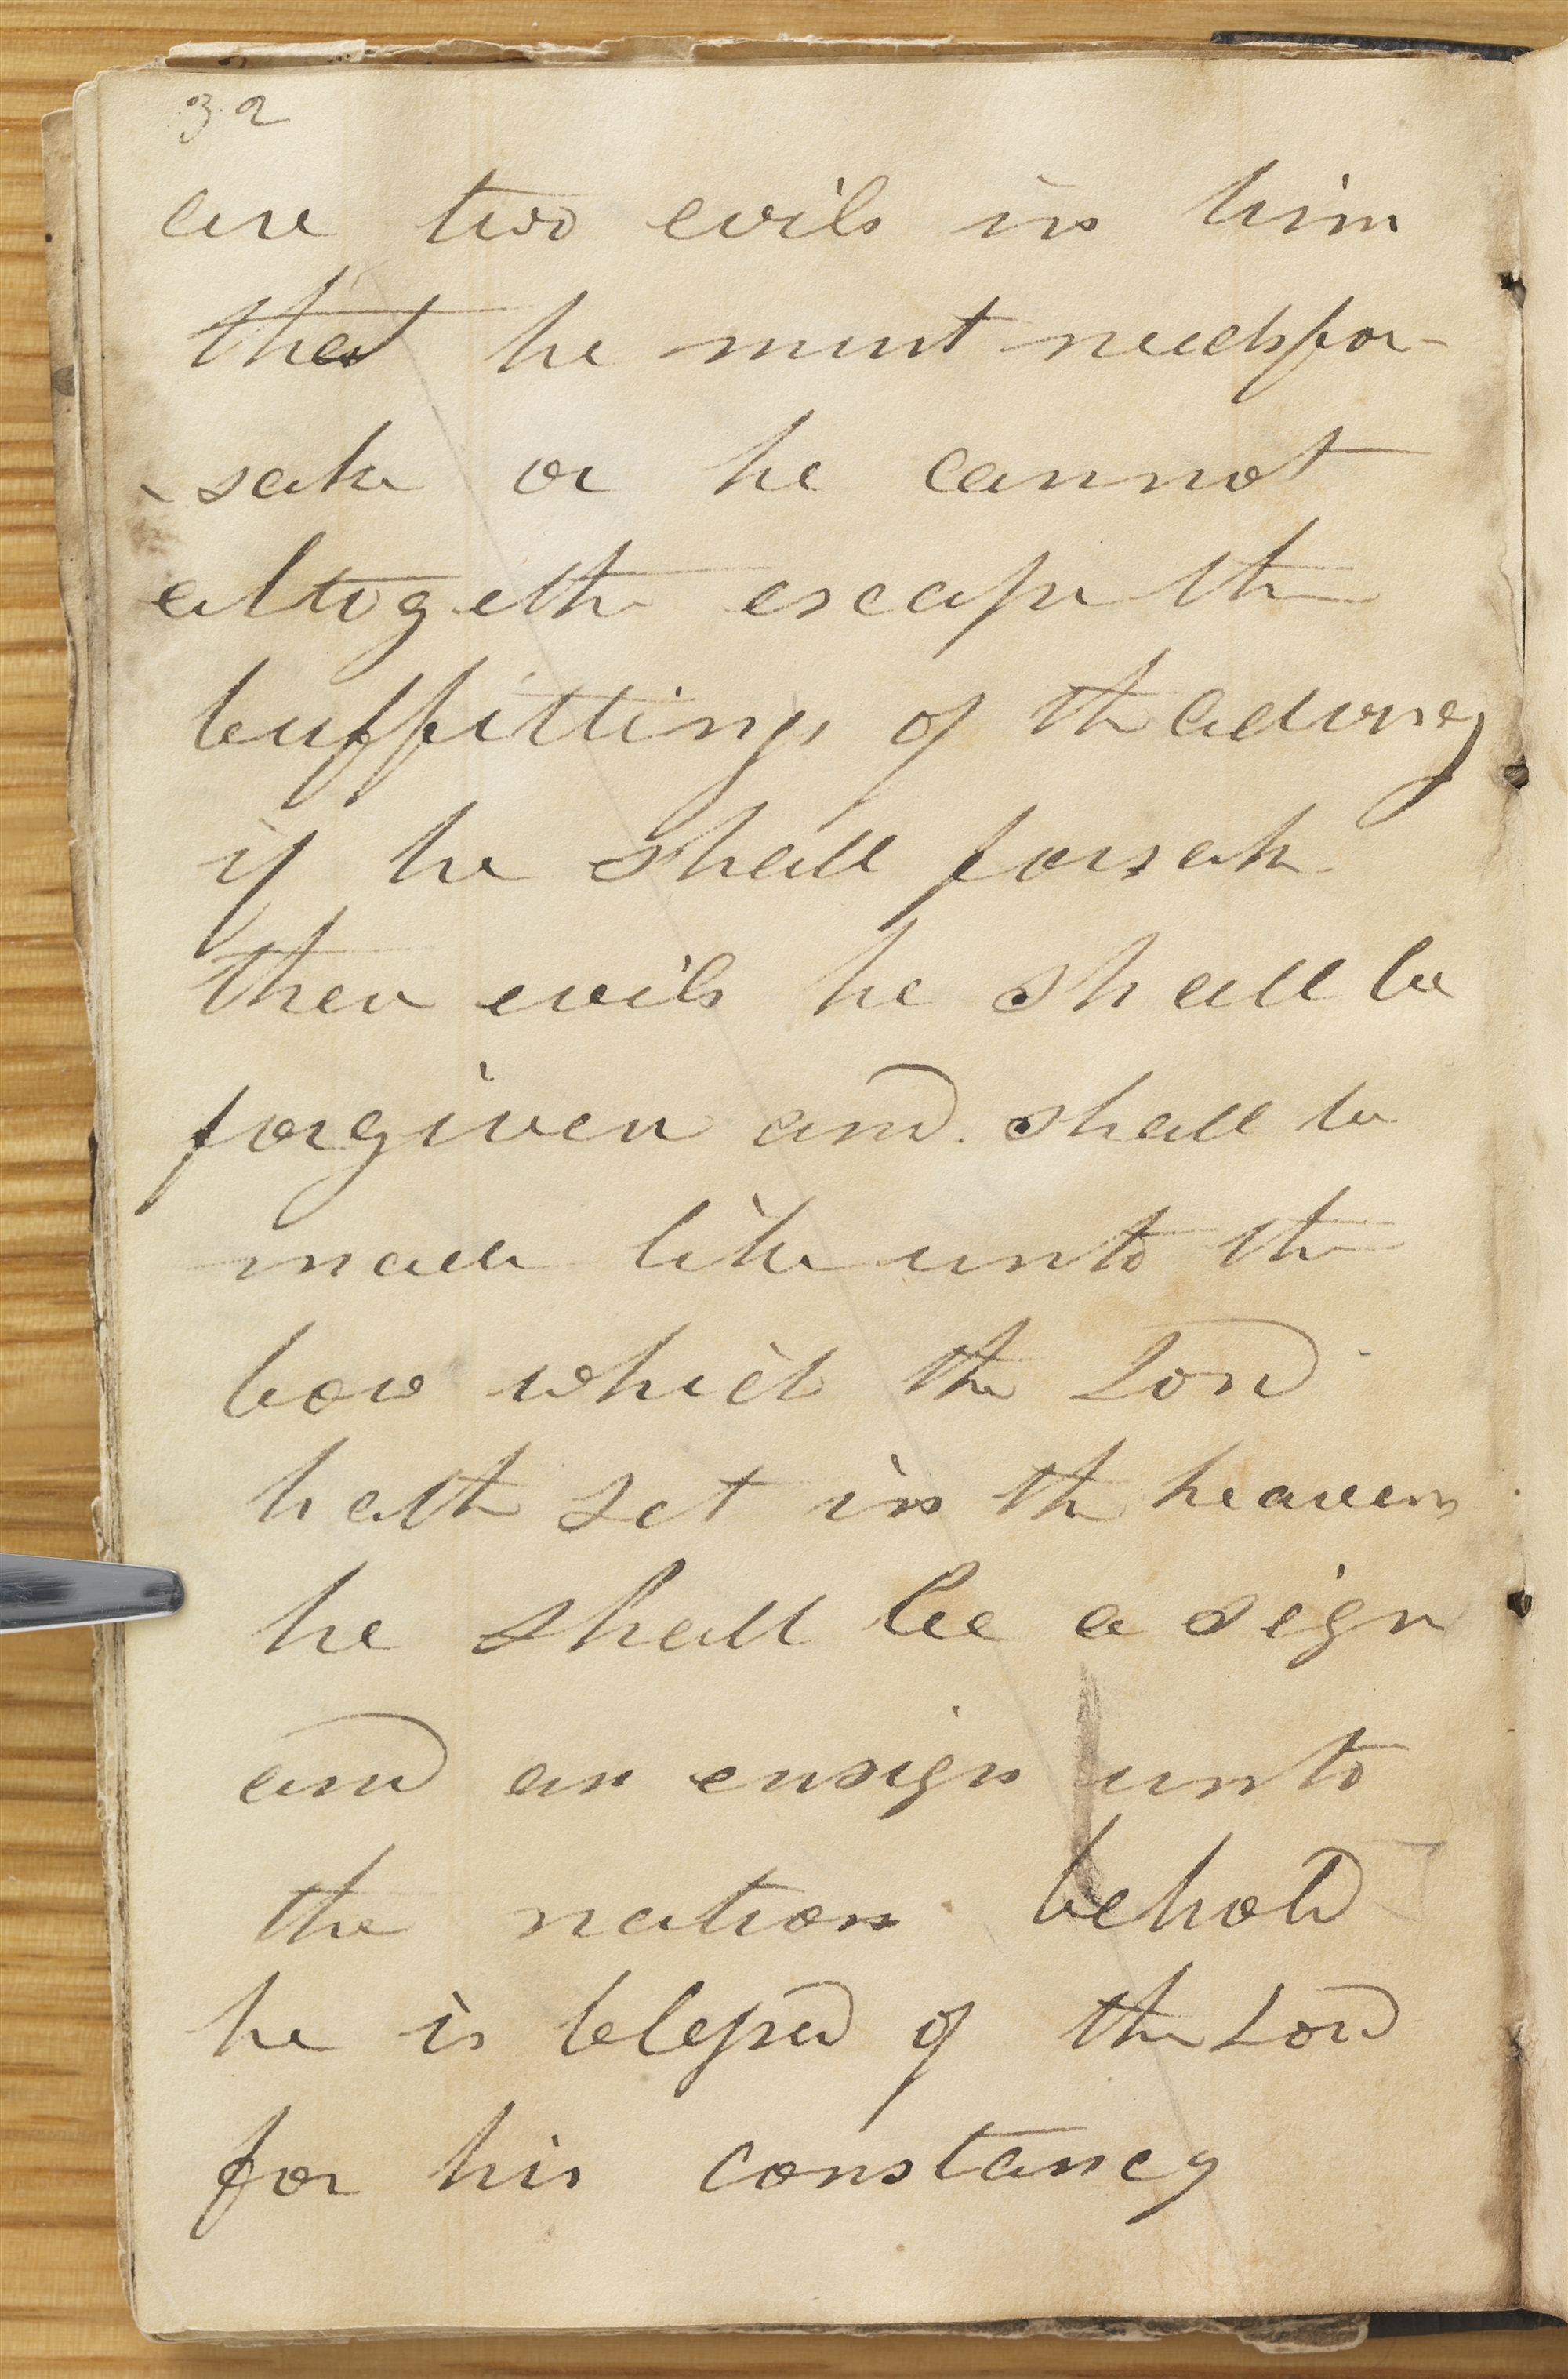 32
are two evils in him
that he must needs for-
-sake or he cannot
altogethe escape the
buffittings of the adversy
if he shall forsake
these evils he shall be
forgiven and shall be
made like unto the
bow which the Lord
hath set in the heavens
he shall be a sign
and an ensign unto
the nation behold
he is blessed of the Lord
for his constancy